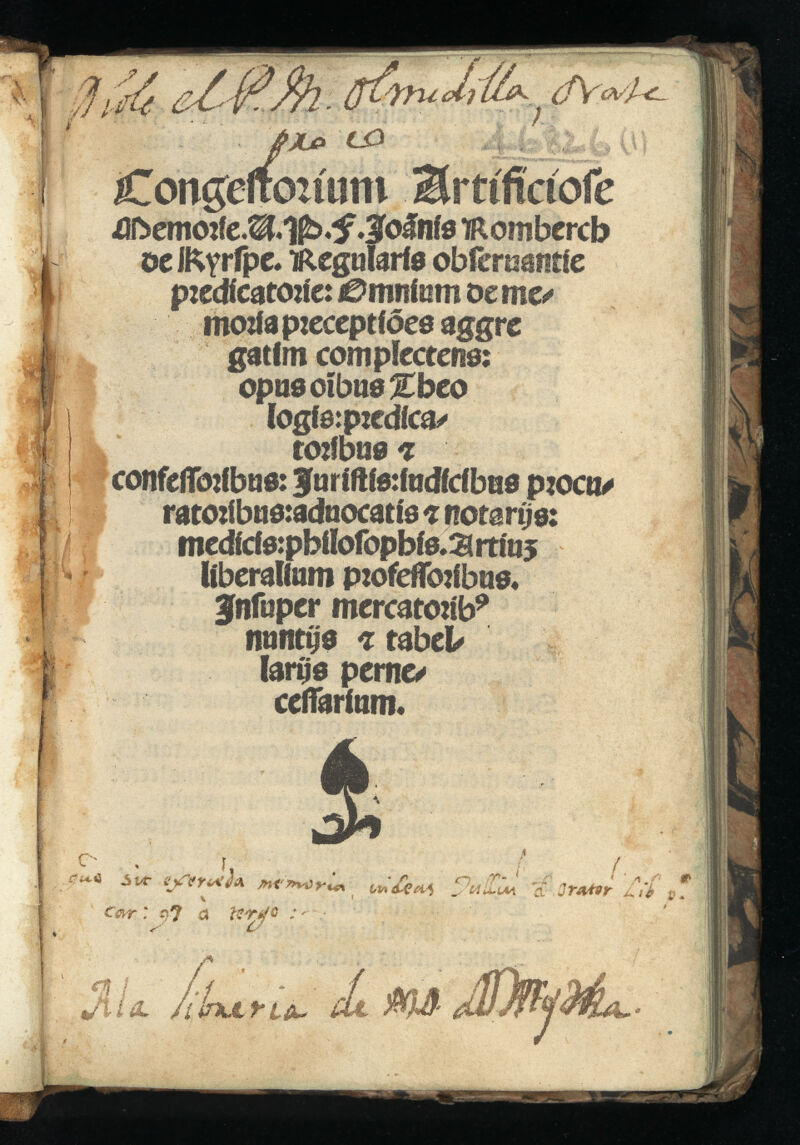 Diole el P. M. Olmedilla, orate
pro eo
46826 (1)
Congestorium Artificiose
Memorie. V. P. F. Joānis Romberch
de Kyrspe. Regularis obseruantie
predicatorie: Omnium de me⸗
moria preceptiōes aggre
gatim complectens:
opus oībus Theo
logis: predica⸗
toribus ⁊
confessoribus: Juristis: iudicibus procu⸗
ratoribus: aduocatis ⁊ notarijs:
medicis: philosophis. Artiuꝫ
liberalium professoribus.
Insuper mercatoribꝰ
nuntijs ⁊ tabel⸗
larijs perne⸗
cessarium.
quō sit exercēda memoria, uideas Tulliū orator Lib pº
car: 97 à tergo:
A la libreria de